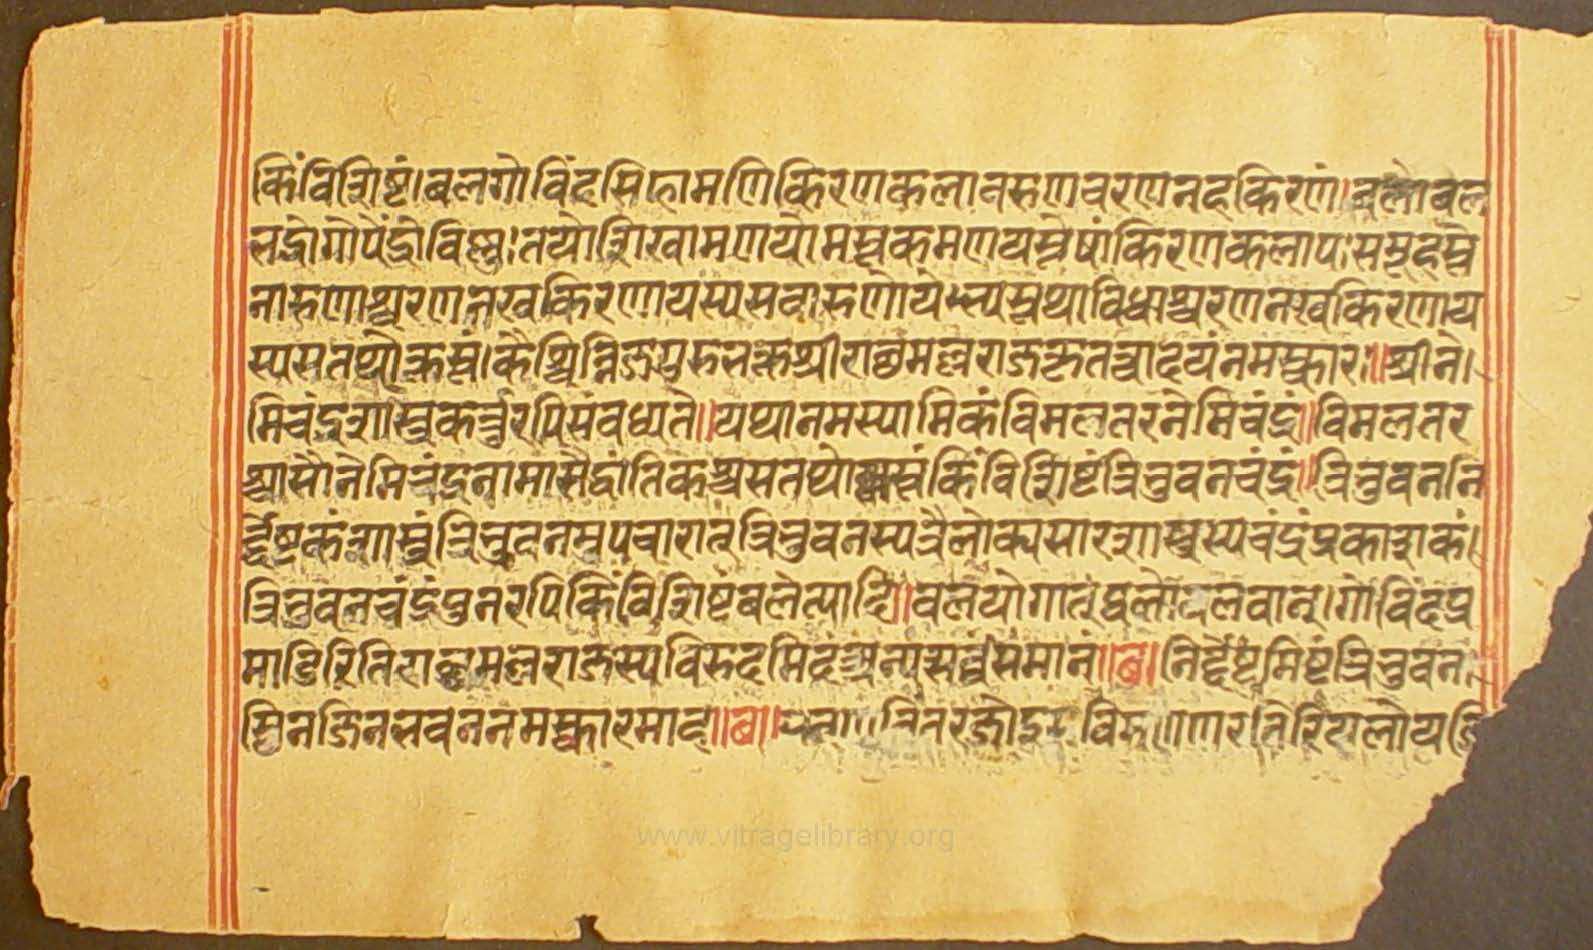 किंविशिष्टं।बलगोविंदसिहामणिकिरणकलानरुणचरणनहकिरणं।बलोबल
लद्रोगोपेंद्रोविष्णुः।तयोशिखामणयोमस्तकमणयस्तेषांकिरणकलापःसमूहस्ते
नारुणाश्चरणनखकिरणायस्यसवारुणोयेस्यस्तथाविधाश्चरणनखकिरणाय
स्यसतथोक्तस्तं।कैश्चिन्निजगुरुभक्तश्रीराछमल्लराजकृतत्वादयंनमस्कारः॥श्रीने।
मिचंद्रशास्त्रकर्त्तुरपिसंवध्यते॥यथानमस्यामिकंविमलतरनेमिचंद्रं॥विमलतर
श्चासौनेमिचंद्रनामासैद्धांतिकश्चसतथोक्तस्तंकिंविशिष्टंत्रिभुवनचंद्रं॥त्रिभुवननि
र्द्देष्टकंशास्त्रंत्रिभुवनमुपचारात्त्रिभुवनस्यत्रैलोक्यसारशास्त्रस्यचंद्रंप्रकाशकं।
त्रिभुवनचंद्रंपुनरपिकिंविशिष्टंबलेत्यादि॥बलयोगात् बलवान्।गोविंदप्र
मल्लराजस्यविरुदमिदं समानं॥छ।निर्द्देष्टुमिष्टंत्रिभुवन
जिनभवननमस्कारमाह॥छ॥
www.vitragelibrary.org